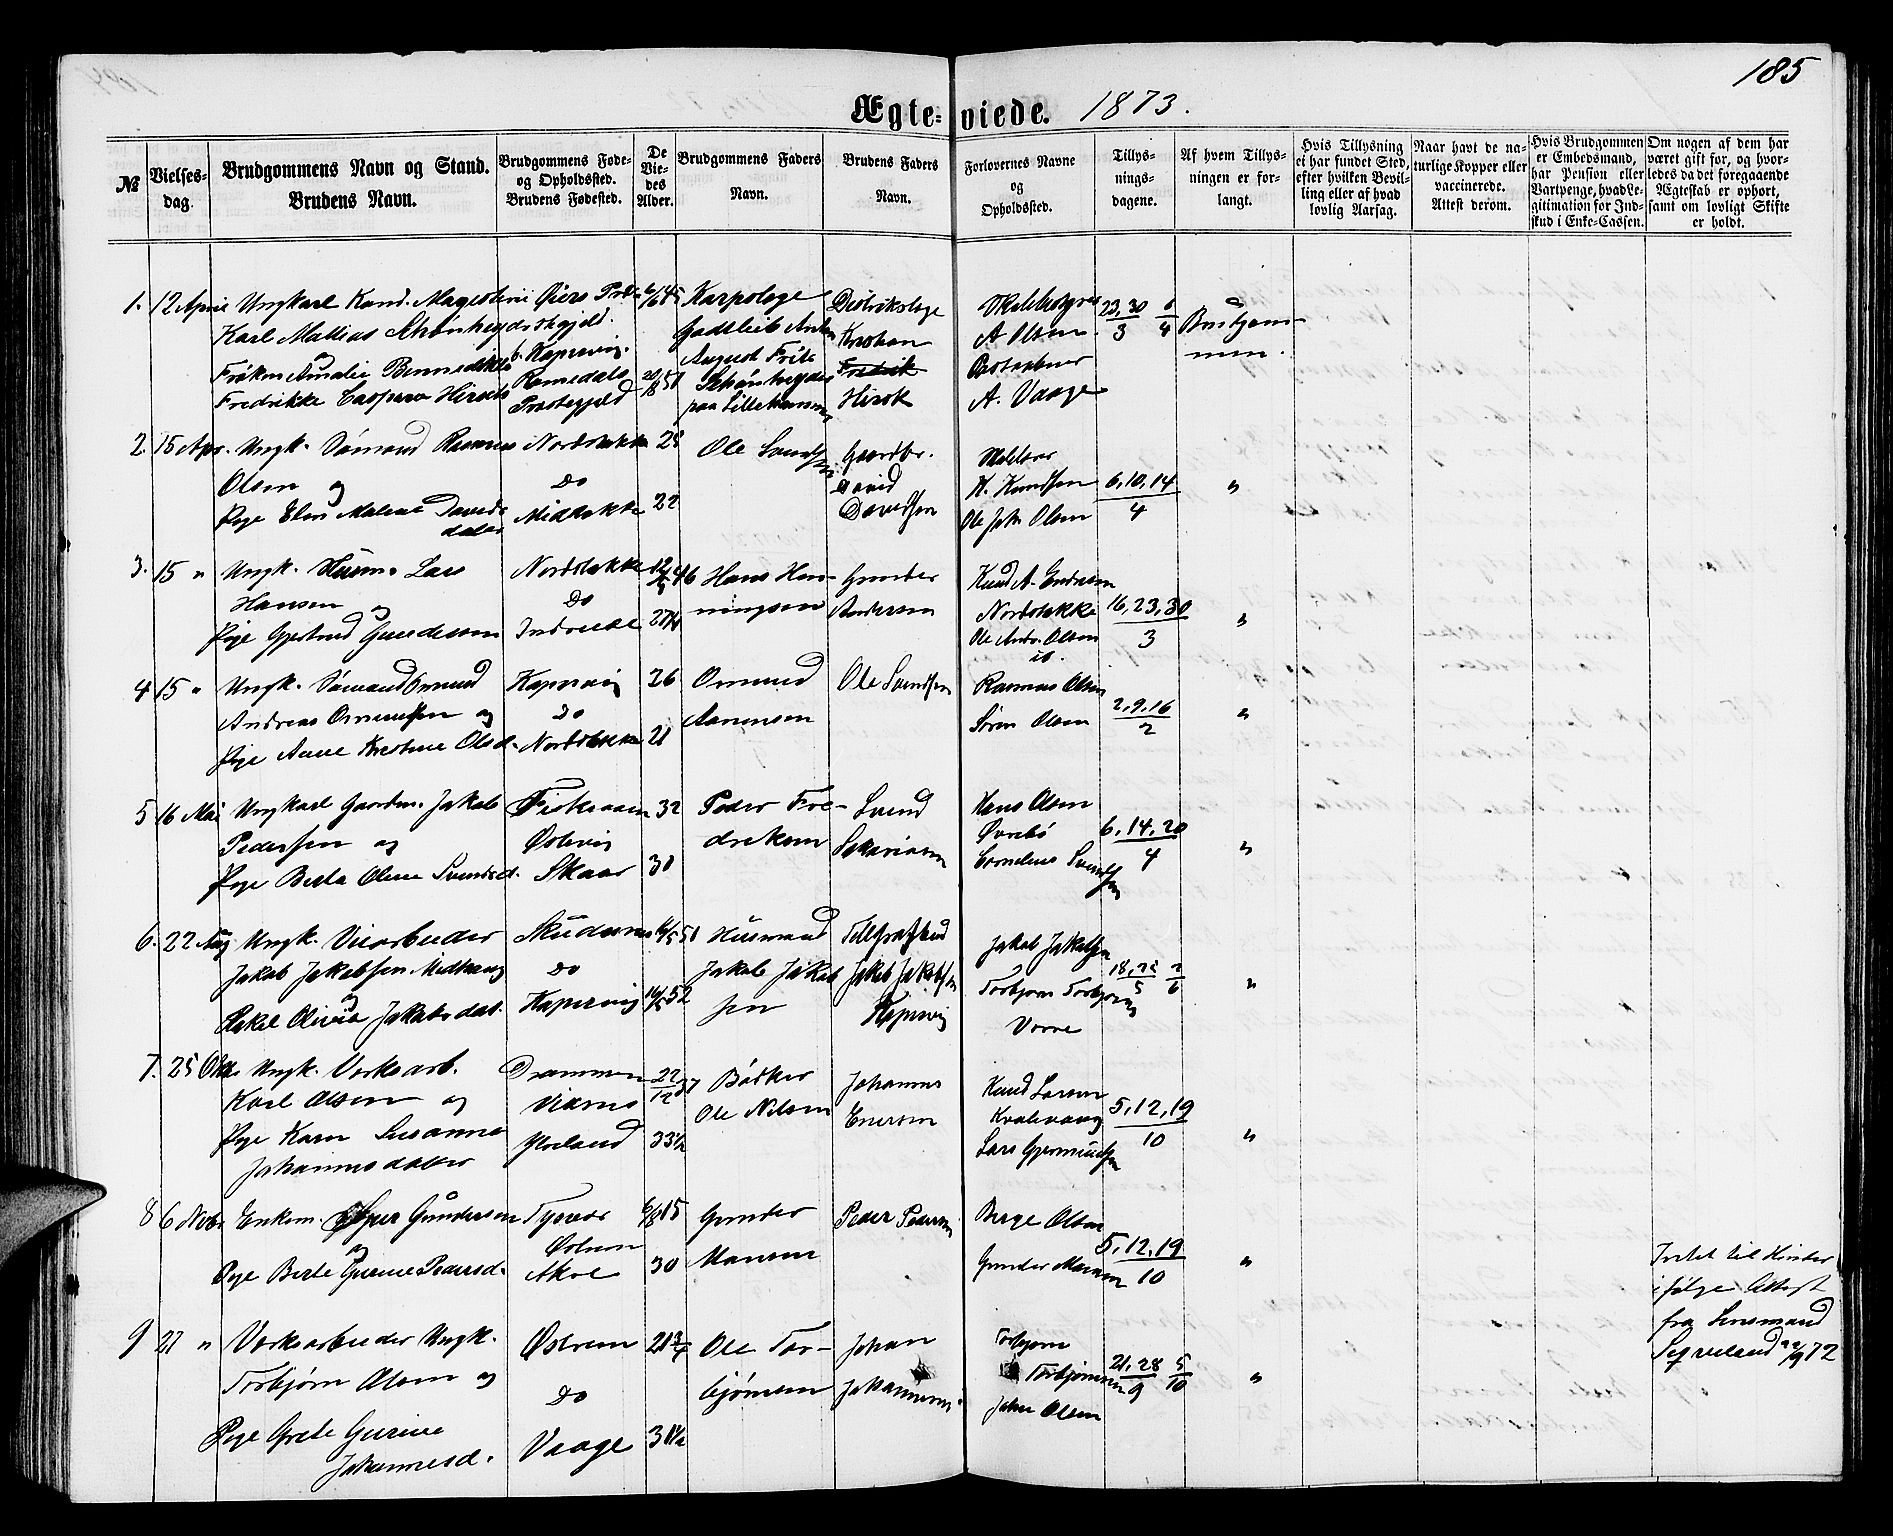 185
Ægte-viede. 1873.
№
Vielses-dag.
Brudgommens Navn og Stand.
Brudens Navn.
Brudgommens Føde- og Opholdssted.
Brudens Fødested.
De Vie-des Alder.
Brudgommens Faders Navn.
Brudens Faders Navn.
Forlovernes Navne og Opholdssted.
Tillys-nings-dagene.
Af hvem Tillys-ningen er for-langt.
Hvis Tillysning ei har fundet Sted, efter hvilken Bevil-ling eller af hvad lovlig Aarsag.
Naar havt de na-turlige Kopper eller vaccinerede. Attest derom.
Hvis Brudgommen er Embedsmand, har Pension eller Vartpenge, hvad Le-gitimation for Ind-skud i Enke-Cassen.
Om nogen af dem har været gift for, og hvor-ledes da det foregaaende Ægteskab er ophørt, samt om lovligt Skifte er holdt.
1. 12 April Ungkarl Kand.
Karl Mathias
og
Frøken Amalie
Fredrikke
Kopervig
Præstegjeld
20/8 51
Karpolage
August
Distriktslæge
Kristian
Fredrik
A. Olsen
A. Vaage
23, 30 6
3 4
Brudgom-
men.
2. 15 Apr. Ungk. Sømand Rasmus
Olsen og
Pige Elen Malene Davids
datter
Nordstokke
Do
Midstokke
25
22
Ole Svendsen
Gaardbr.
David
Davidsen
K. Knudsen
Ole Joh. Olsen
6, 10, 14
4
"
3. 15 " Ungk. Husm. Lars
Hansen og
Pige Gjertrud Gundersen
Nordstokke
Do
Hans Hen-
ningsen
Gunder
Andersen
Knud A. Endresen
Nordstokke
Ole Andr. Olsen
ib.
16, 23, 30
3
"
4 15 " Ungk. Sømand Omund
Andreas Omundsen og
Pige Anne Kristine Olsd.
Kopervig
Do
Nordstokke
26
21
Omund
Aanensen
Ole Svendsen
Rasmus Olsen
Søren Olsen
2, 9, 16
2
"
5 16 Mai Ungkarl Gaardm. Jakob
Pedersen og
Pige Berta Oline Svendsd.
Østevig
Skaar
32
30
Peder Fre-
driksen
Svend
Sakariasen
Hans Olsen
Øvrebø
Cornelius Svendsen
6, 14, 20
4
"
6. 22 Aug Ungk. Veiarbeider
Jakob Jakobsen Medhaug
og
Rakel Olivia Jakobsdat.
Skudesnes
Do
Kopervig
Husmand
Jakob Jakob
sen
Jakob Jakobsen
Kopervig
Jakob Jakobsen
Torbjørn Torbjørnsen
Vorre
18, 25 2
5 6
"
7. 25 Okt. Ungk. Verksarb.
Karl Olsen og
Pige Karn Susanna
Johannesdatter
Drammen
Visnes
33 1/2
22/12 37
Bødker
Ole Nilsen
Johannes
Enersen
Knud Larsen
Kvalevaag
Lars Gjermundsen
5, 12, 19
10
"
8 6 Novbr. Enkem. Asper Gundersen
og
Pige Berte Gurine Pedersd.
Tysvær
Østrem
30
Gunder
Monsen
Peder Pedersen
Berge Olsen
Gunder Monsen
5, 12, 19
10
"
Intet til Hinder
ifølge Attest
fra Lensmand
9 27 " Verksarbeider Ungk.
Torbjørn Olsen og
Pige Grete Gurine
Johannesd.
Østrem
Do
Vaage
21 3/4
Ole Tor-
bjørnsen
Johan
Johannesen
Torbjørn
Torbjørnsen
Johan Olsen
21, 28 5
9 10
"